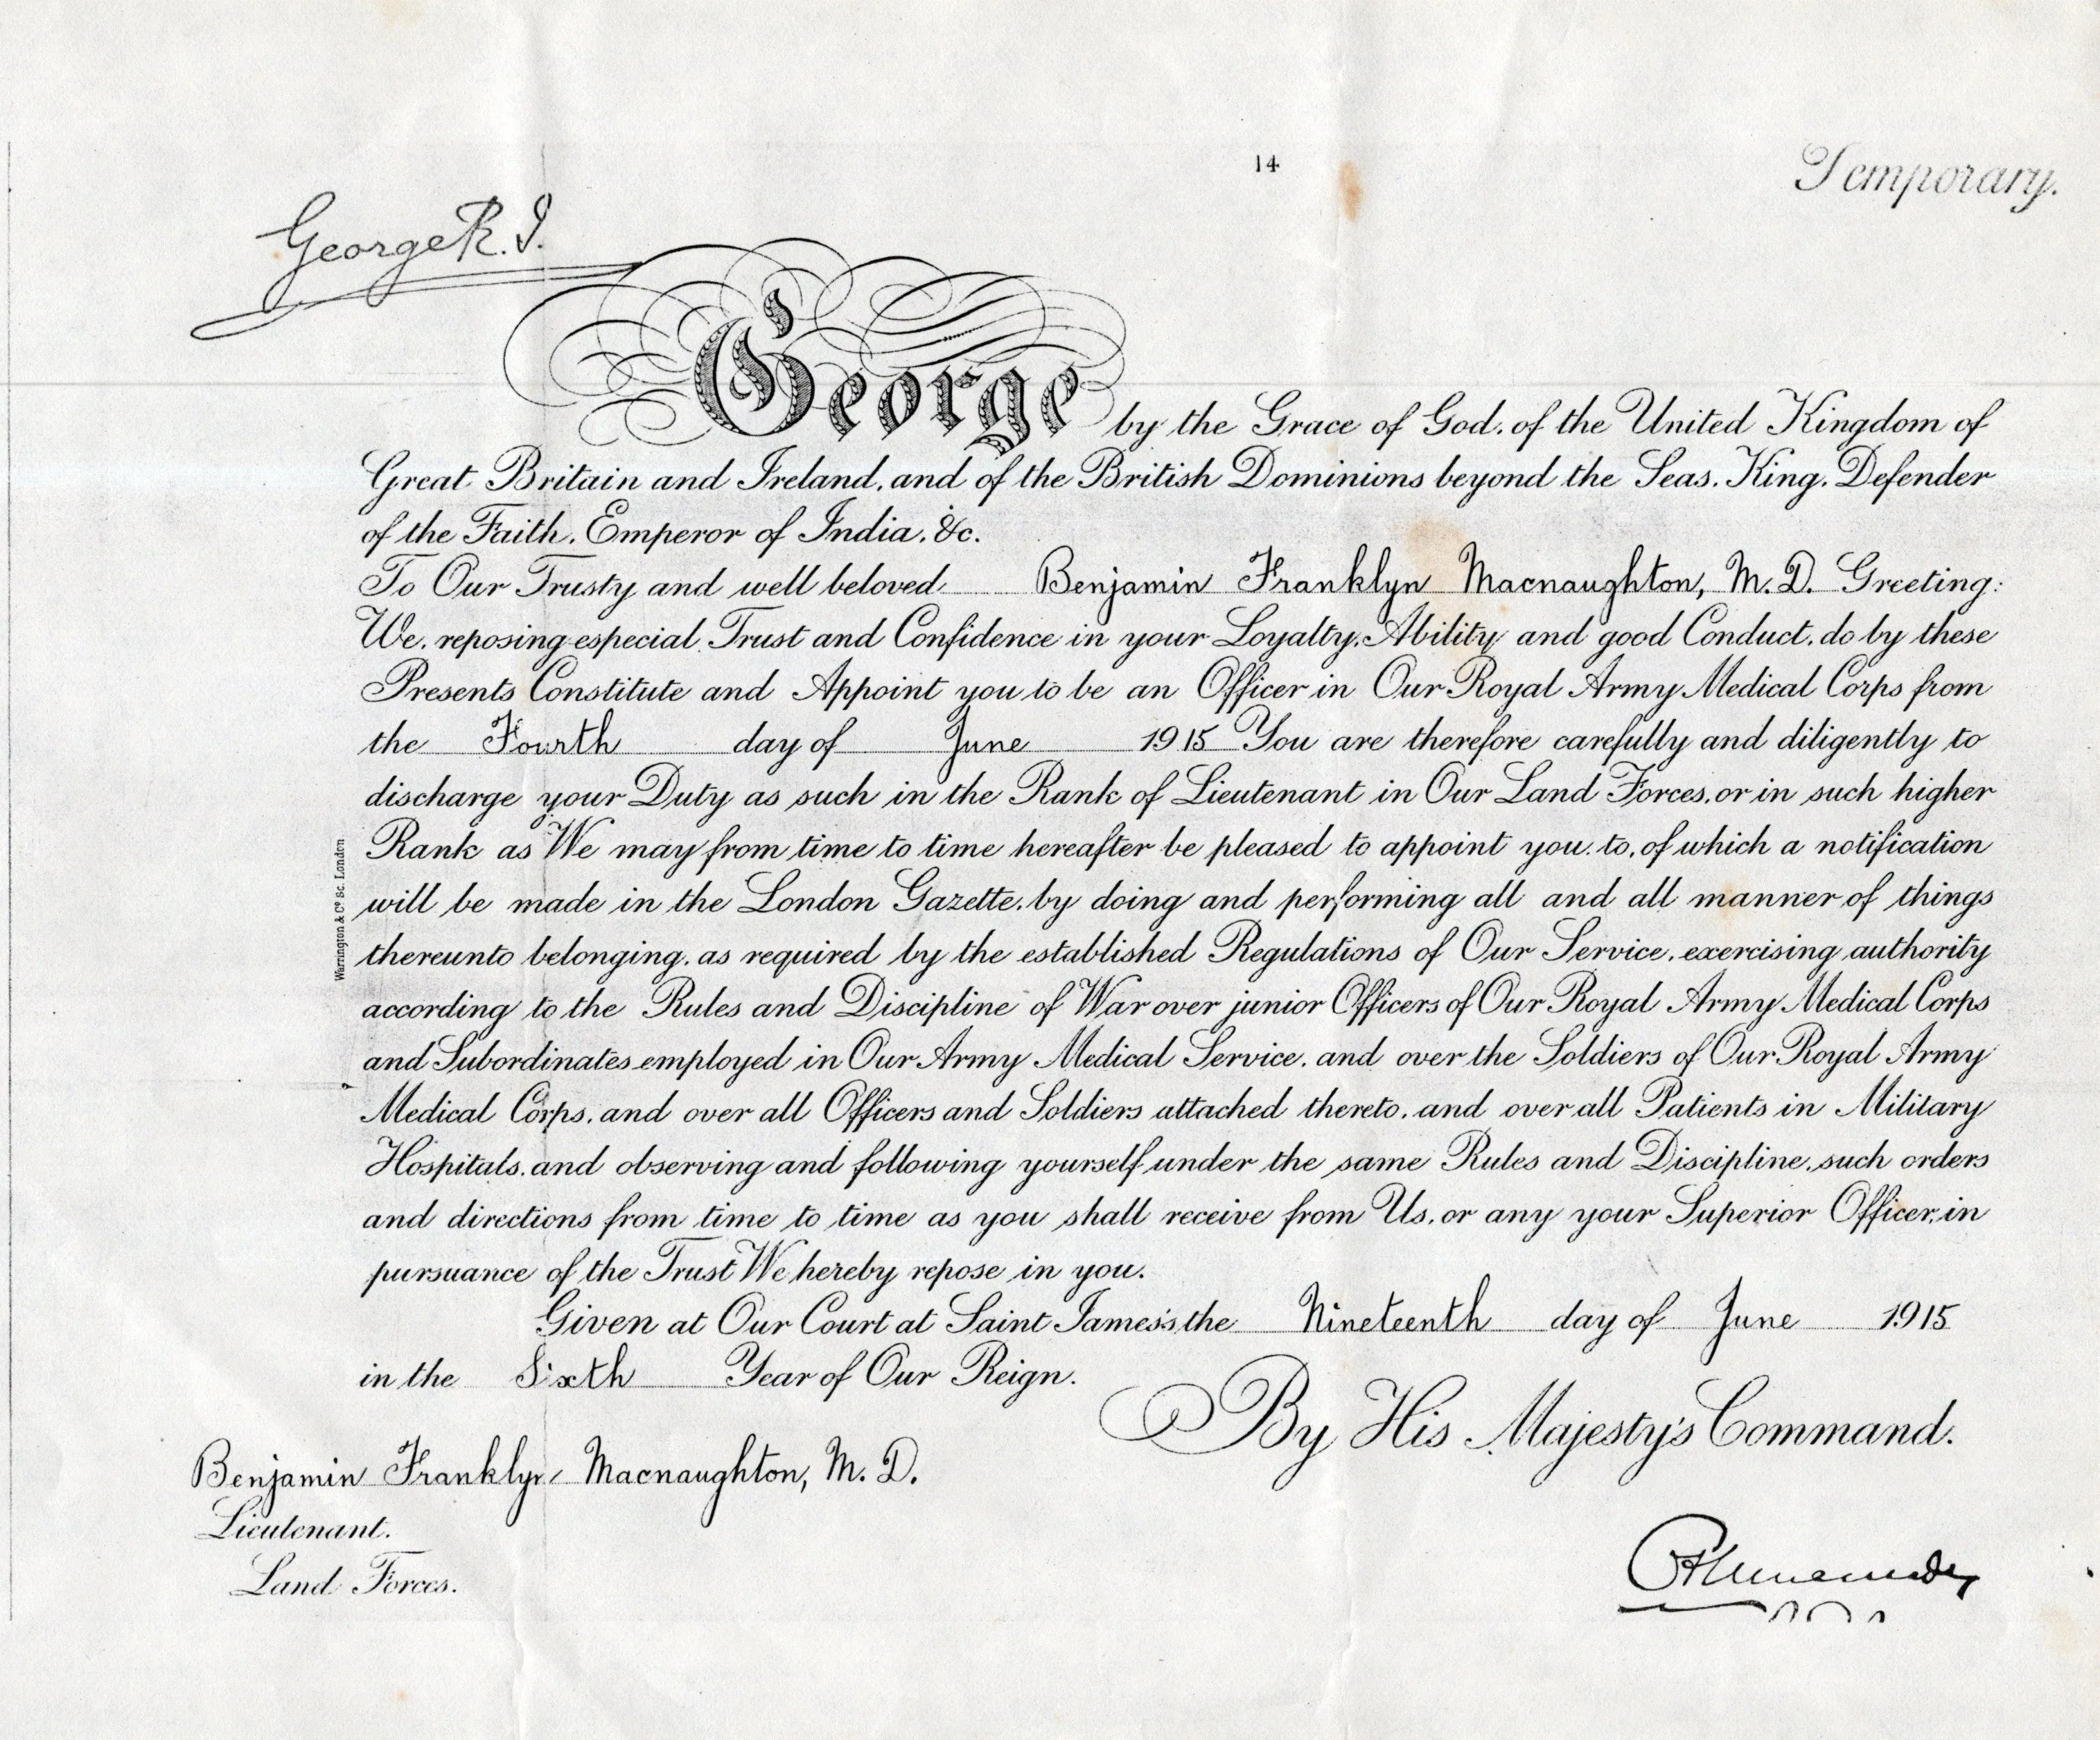 14
Temporary.
George R. I.
George by the Grace of God, of the United Kingdom of
Great Britain and Ireland, and of the British Dominions beyond the Seas, King, Defender
of the Faith, Emperor of India, &c.
To Our Trusty and well beloved Benjamin Franklyn Macnaughton, M.D. Greeting:
We, reposing especial Trust and Confidence in your Loyalty, Ability and good Conduct, do by these
Presents Constitute and Appoint you to be an Officer in Our Royal Army Medical Corps from
the Fourth day of June 1915 You are therefore carefully and diligently to
discharge your Duty as such in the Rank of Lieutenant in Our Land Forces, or in such higher
Rank as We may from time to time hereafter be pleased to appoint you to, of which a notification
will be made in the London Gazette, by doing and performing all and all manner of things
thereunto belonging, as required by the established Regulations of Our Service, exercising authority
according to the Rules and Discipline of War over junior Officers of Our Royal Army Medical Corps
and Subordinates employed in Our Army Medical Service, and over the Soldiers of Our Royal Army
Medical Corps, and over all Officers and Soldiers attached thereto, and over all Patients in Military
Hospitals, and observing and following yourself under the same Rules and Discipline, such orders
and directions from time to time as you shall receive from Us, or any your Superior Officer, in
pursuance of the Trust We hereby repose in you.
Given at Our Court at Saint James's the Nineteenth day of June 1915
in the Sixth Year of Our Reign.
By His Majesty's Command.
Benjamin Franklyn Macnaughton, M. D.
Lieutenant.
Land Forces.
Warrington & Co. Sc. London